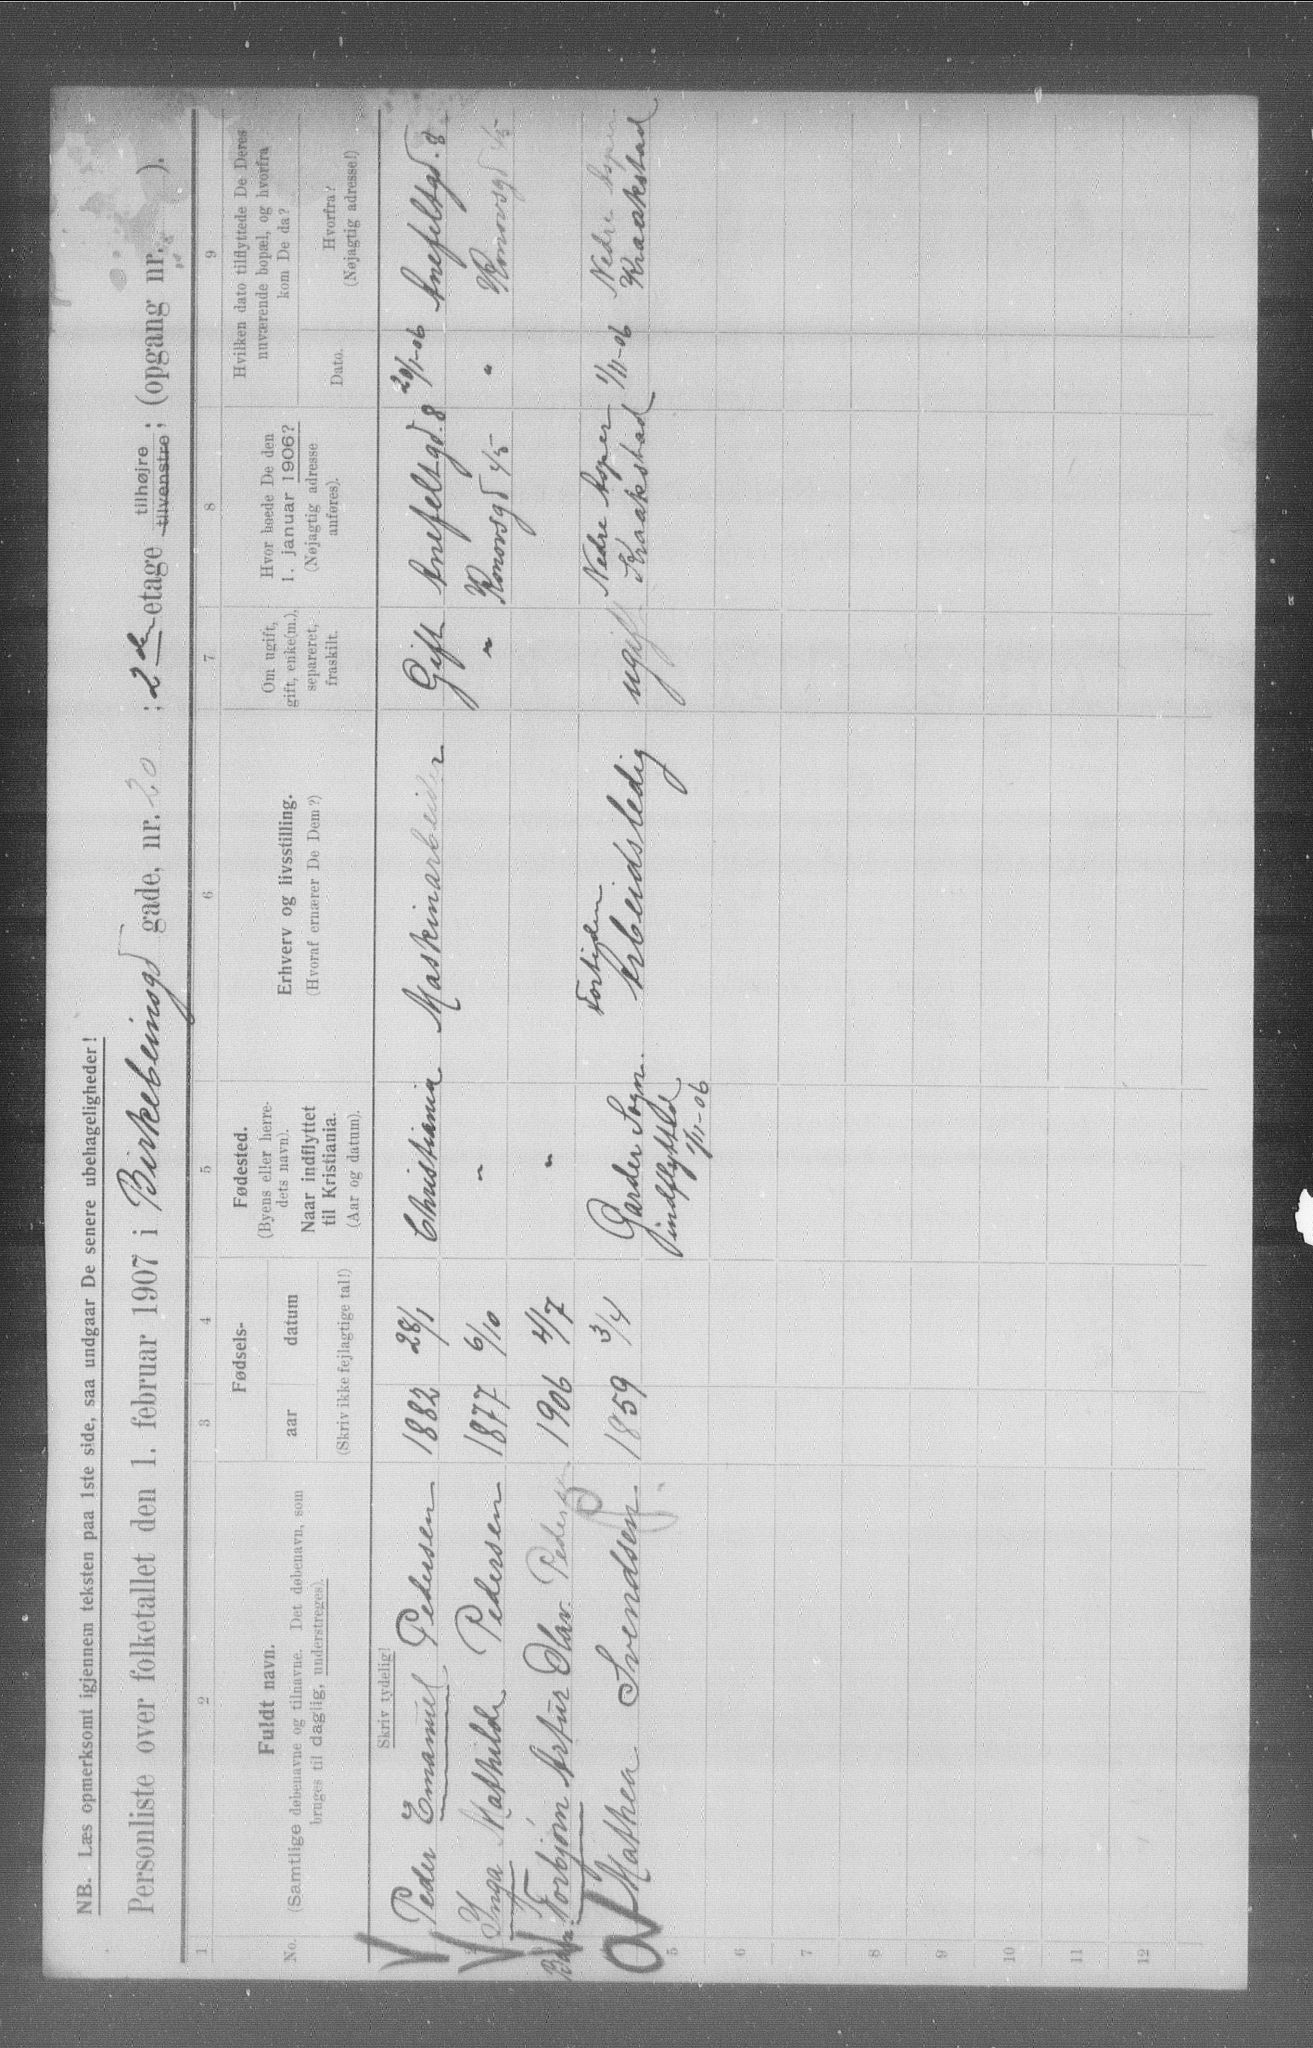 NB. Læs opmerksomt igjennem teksten paa 1ste side, saa undgaar De senere ubehageligheder!
Personliste over folketallet den 1. februar 1907 i Birkebeinsgd gade, nr. 20 ; 2den etage tilhøjre tilvenstre; (opgang nr. ).
1 2 3 4 5 6 7 8 9
No.
Fuldt navn.
(Samtlige døbenavne og tilnavne. Det døbenavn, som
bruges til daglig, understreges).
Fødsels-
aar datum
(Skriv ikke fejlagtige tal!)
Fødested.
(Byens eller herre-
dets navn).
Naar indflyttet
til Kristiania.
(Aar og datum).
Erhverv og livsstilling.
(Hvoraf ernærer De Dem?)
Om ugift,
gift, enke(m.),
separeret,
fraskilt.
Hvor boede De den
1. januar 1906?
(Nøjagtig adresse
anføres).
Hvilken dato tilflyttede De Deres
nuværende bopæl, og hvorfra
kom De da?
Dato.
Hvorfra?
(Nøjagtig adresse!)
Skriv tydelig!
Peder Emanuel Pedersen 1882 28/1 Christiania Maskinarbeider Gift Anefeltsgd. 8 20/1-06 Anefeltsgd. 8
Inga Mathilde Pedersen 1877 6/10 " " Konowsgd 45 " Konowsgd 45
Torbjørn Artur Olav. Pedersen 1906 4/7 "
Mathea Svendsen. 1859 3/4 Garder Sogn. Fortiden Arbeidsledig ugift Nedre Asper 1/11-06 Nedre Asper
indflyttet 1/11-06 Kraakstad Kraakstad
5
6
7
8
9
10
11
12